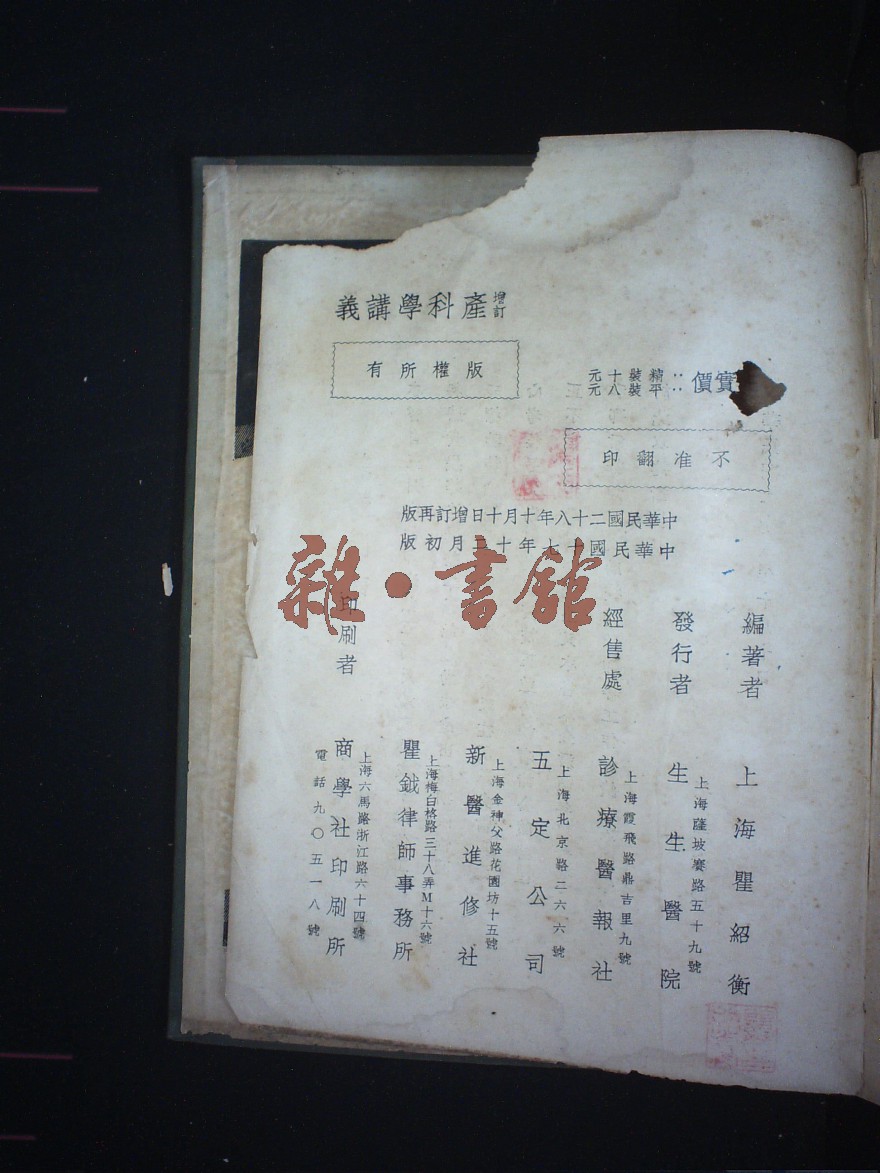 增訂產科學講義
版權所有
實價::精裝十元
平裝八元
不准翻印
中華民國二十八年十月十日增訂再版
中華民國十七年十二月初版
編著者 上海瞿紹衡
發行者 生生醫院
上海薩坡賽路五十九號
經售處 診療醫報社
上海霞飛路鼎吉里九號
五定公司
上海北京路二六六號
新醫進修社
上海金神父路花園坊十五號
瞿鉞律師事務所
上海梅白格路三十八弄M十六號
印刷者 商學社印刷所
上海六馬路浙江路六十四號
電話九〇五一八號
雜·書館